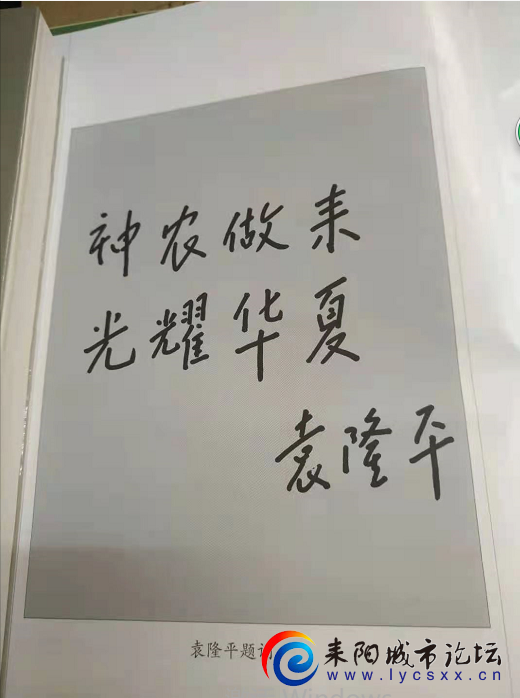 神农做耒
光耀华夏
袁隆平
袁隆平题
耒阳城市论坛
www.lycsxx.cn
Windows